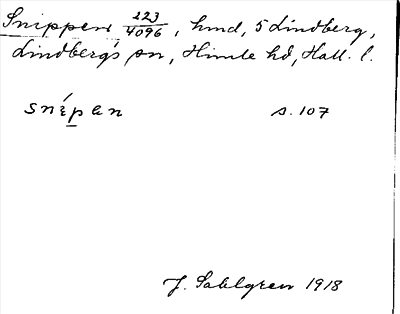 Snippen 223/4096, hmd, 5 Lindberg,
Lindbergs sn, Himle hd, Hall. l.
snípen s. 107
J. Sahlgren 1918